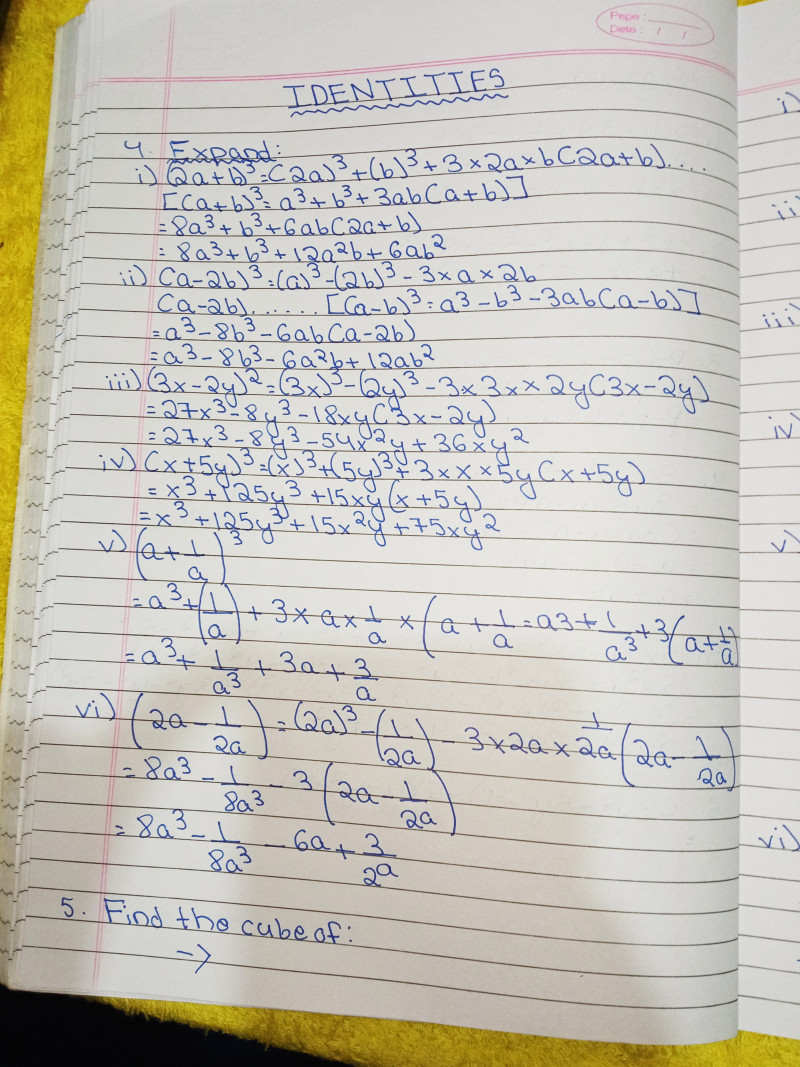 Page:
Date: / /
IDENTITIES
4. Expand:
i) (2a+b)³=(2a)³+(b)³+3×2a×b(2a+b)....
[(a+b)³=a³+b³+3ab(a+b)]
=8a³+b³+6ab(2a+b)
=8a³+b³+12a²b+6ab²
ii) (a-2b)³=(a)³-(2b)³-3×a×2b
(a-2b)...... [(a-b)³=a³-b³-3ab(a-b)]
=a³-8b³-6ab(a-2b)
=a³-8b³-6a²b+12ab²
iii) (3x-2y)²=(3x)³-(2y)³-3×3x×2y(3x-2y)
=27x³-8y³-18xy(3x-2y)
=27x³-8y³-54x²y+36xy²
iv) (x+5y)³=(x)³+(5y)³+3×x×5y(x+5y)
=x³+125y³+15xy(x+5y)
=x³+125y³+15x²y+75xy²
v) (a+1/a)³
=a³+(1/a)+3×a×1/a×(a+1/a=a3+1/a³+3(a+1/a)
=a³+1/a³+3a+3/a
vi) (2a-1/2a)=(2a)³-(1/2a)-3×2a×1/2a(2a-1/2a)
=8a³-1/8a³-3(2a-1/2a)
=8a³-1/8a³-6a+3/2a
5. Find the cube of:
→
i)
ii)
iii)
iv)
v)
vi)